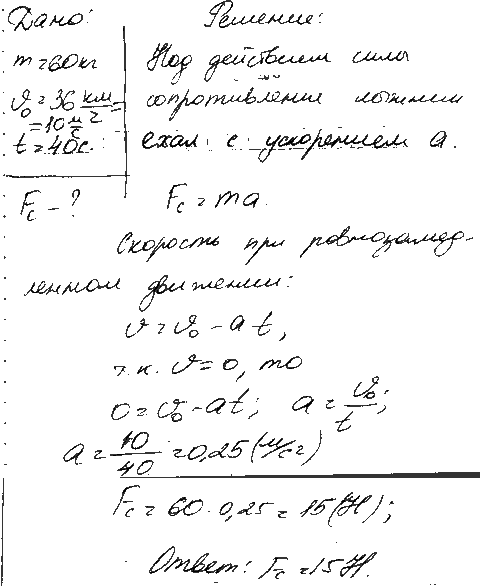 Дано:
m=60кг
v₀=36 км/ч =
=10 м/с
t=40с.
Fc - ?
Решение:
Под действием силы
сопротивление лыжник
ехал с ускорением a.
Fc=ma.
Скорость при равнозамед-
ленном движении:
v=v₀-at,
т.к. v=0, то
0=v₀-at; a=v₀/t;
a=10/40=0,25(м/с²)
Fc=60·0,25=15(Н);
Ответ: Fc=15Н.